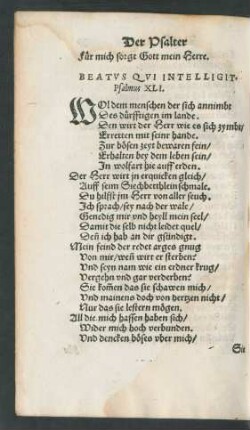 Der Psalter
Für mich sorgt Gott mein Herre.
BEATVS QVI INTELLIGIT.
Psalmus XLI.
WOl dem menschen der sich annimbt
Des dürfftigen im lande.
Den wirt der Herr wie es sich zymbt/
Erretten mit seiner hande.
Zur bösen zeyt bewaren fein/
Erhalten bey dem leben sein/
In wolfart hie auff erden.
Der Herr wirt jn erquicken gleich/
Auff seim Siechbethlein schmale.
Du hilfst jm Herr von aller seuch.
Ich sprach/ sey nach der wale/
Genedig mir vnd heyl mein seel/
Damit die selb nicht leidet quel/
Deñ ich hab an dir gsündigt.
Mein feind der redet arges gnug
Von mir/ weñ wirt er sterben?
Vnd seyn nam wie ein erdner krug/
Vergehn vnd gar verderben?
Sie kom̃en das sie schawen mich/
Vnd mainens doch von hertzen nicht/
Nur das sie lestern mögen.
All die mich hassen haben sich/
Wider mich hoch verbunden.
Vnd dencken böses vber mich/
Sie